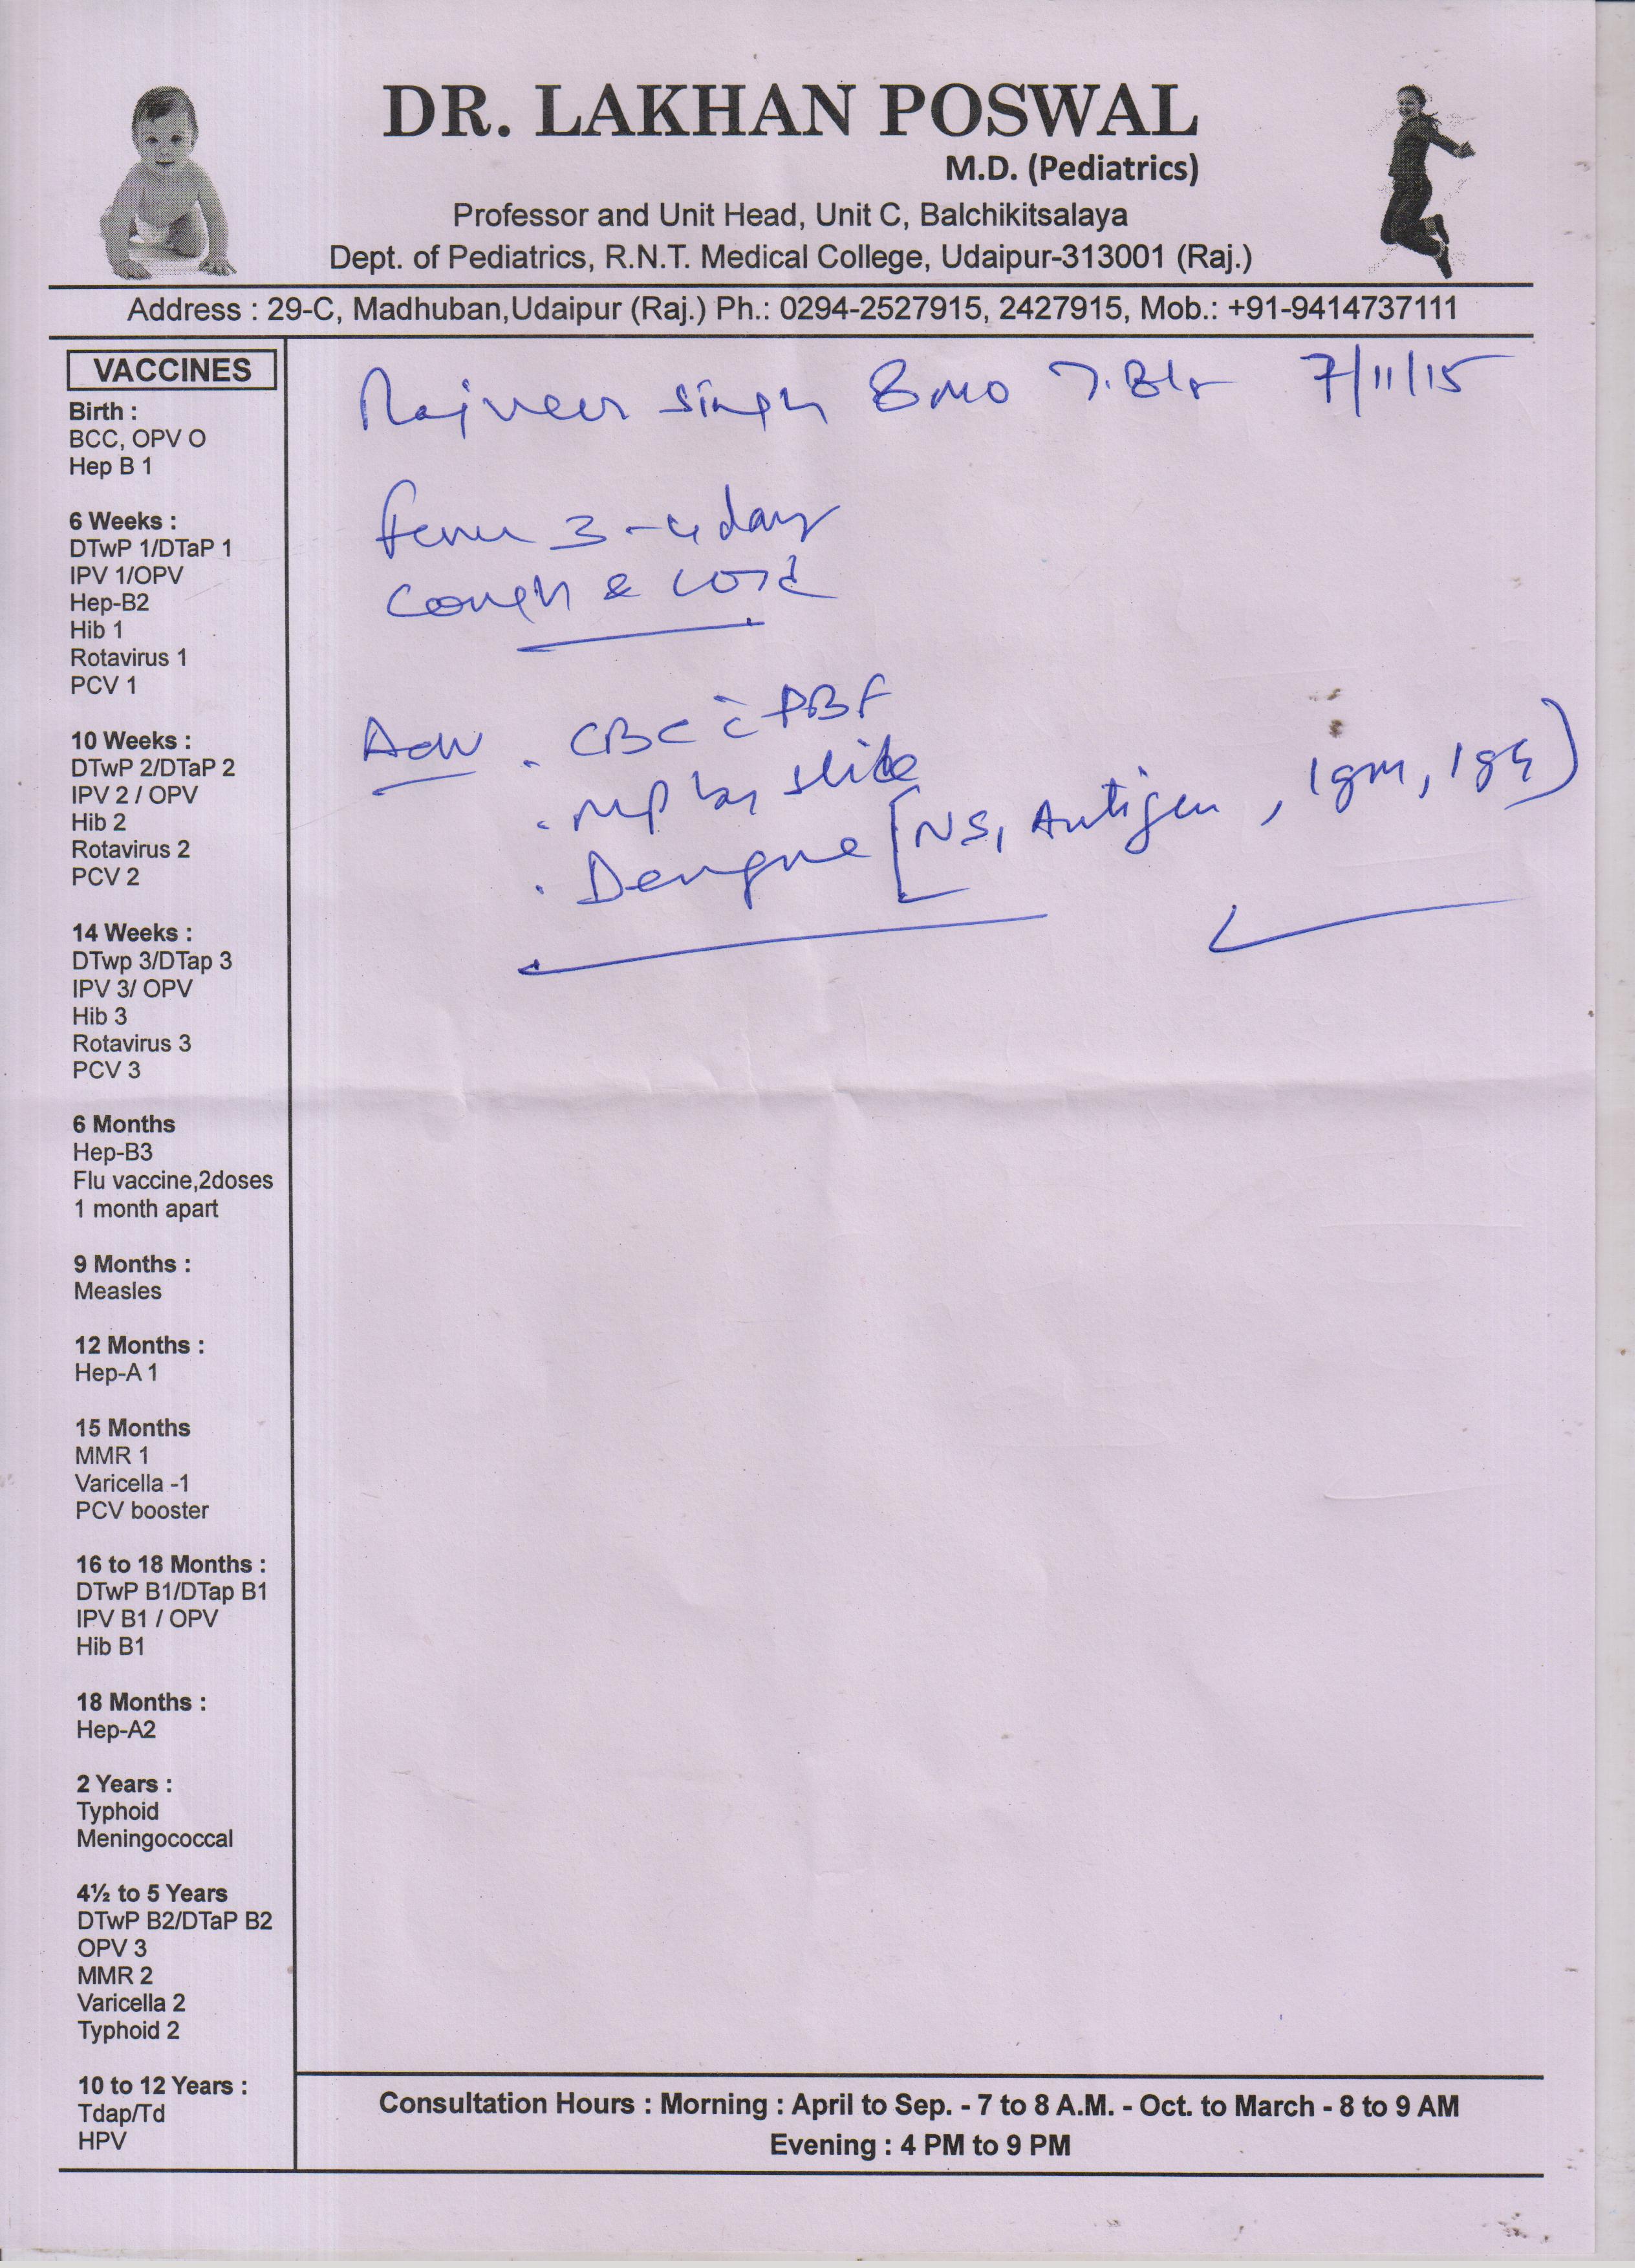 DR. LAKHAN POSWAL
M.D. (Pediatrics)
Professor and Unit Head, Unit C, Balchikitsalaya
Dept. of Pediatrics, R.N.T. Medical College, Udaipur-313001 (Raj.)
Address : 29-C, Madhuban,Udaipur (Raj.) Ph.: 0294-2527915, 2427915, Mob.: +91-9414737111
VACCINES
Birth :
BCC, OPV O
Hep B 1
6 Weeks :
DTwP 1/DTaP 1
IPV 1/OPV
Hep-B2
Hib 1
Rotavirus 1
PCV 1
10 Weeks :
DTwP 2/DTaP 2
IPV 2 / OPV
Hib 2
Rotavirus 2
PCV 2
14 Weeks :
DTwp 3/DTap 3
IPV 3/ OPV
Hib 3
Rotavirus 3
PCV 3
6 Months
Hep-B3
Flu vaccine,2doses
1 month apart
9 Months :
Measles
12 Months :
Hep-A 1
15 Months
MMR 1
Varicella -1
PCV booster
16 to 18 Months :
DTwP B1/DTap B1
IPV B1 / OPV
Hib B1
18 Months :
Hep-A2
2 Years :
Typhoid
Meningococcal
4½ to 5 Years
DTwP B2/DTaP B2
OPV 3
MMR 2
Varicella 2
Typhoid 2
10 to 12 Years :
Tdap/Td
HPV
Rajveer Singh 8mo 7/11/15
Fever 3-4 days
Cough & cold
Adv . CBC c̄ PBF
. MP by slide
. Dengue [NS1 Antigen, IgM, IgG)
Consultation Hours : Morning : April to Sep. - 7 to 8 A.M. - Oct. to March - 8 to 9 AM
Evening : 4 PM to 9 PM